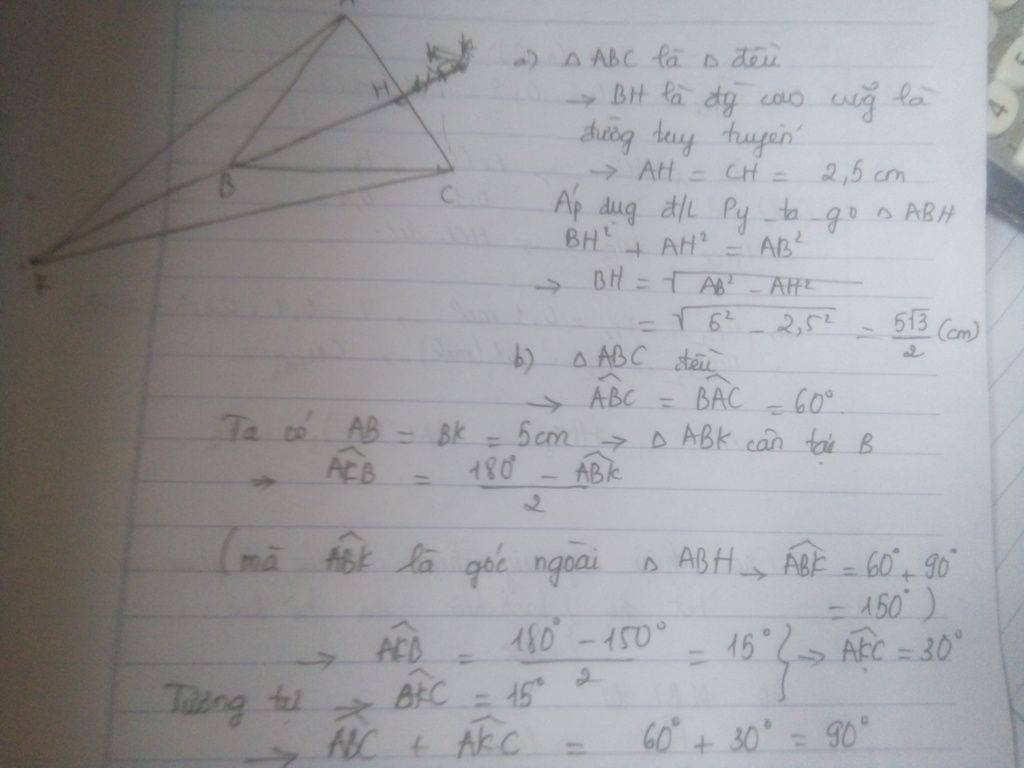 A
H
B
C
K
a) △ ABC là △ đều
→ BH là đg cao cũg là
đường tuy tuyến
→ AH = CH = 2,5 cm
Áp dug đ/L Py_ta_go △ ABH
BH² + AH² = AB²
→ BH = √(AB² - AH²)
= √(6² - 2,5²) = 5√3/2 (cm)
b) △ ABC đều
→ \widehat{ABC} = \widehat{BAC} = 60°.
Ta có AB = BK = 5cm → △ ABK cân tại B
→ \widehat{AKB} = (180° - \widehat{ABK})/2
(mà \widehat{ABK} là góc ngoài △ ABH → \widehat{ABK} = 60° + 90°
= 150°)
→ \widehat{AKB} = (180° - 150°)/2 = 15° } → \widehat{AKC} = 30°
Tương tự → \widehat{BKC} = 15°
→ \widehat{ABC} + \widehat{AKC} = 60° + 30° = 90°